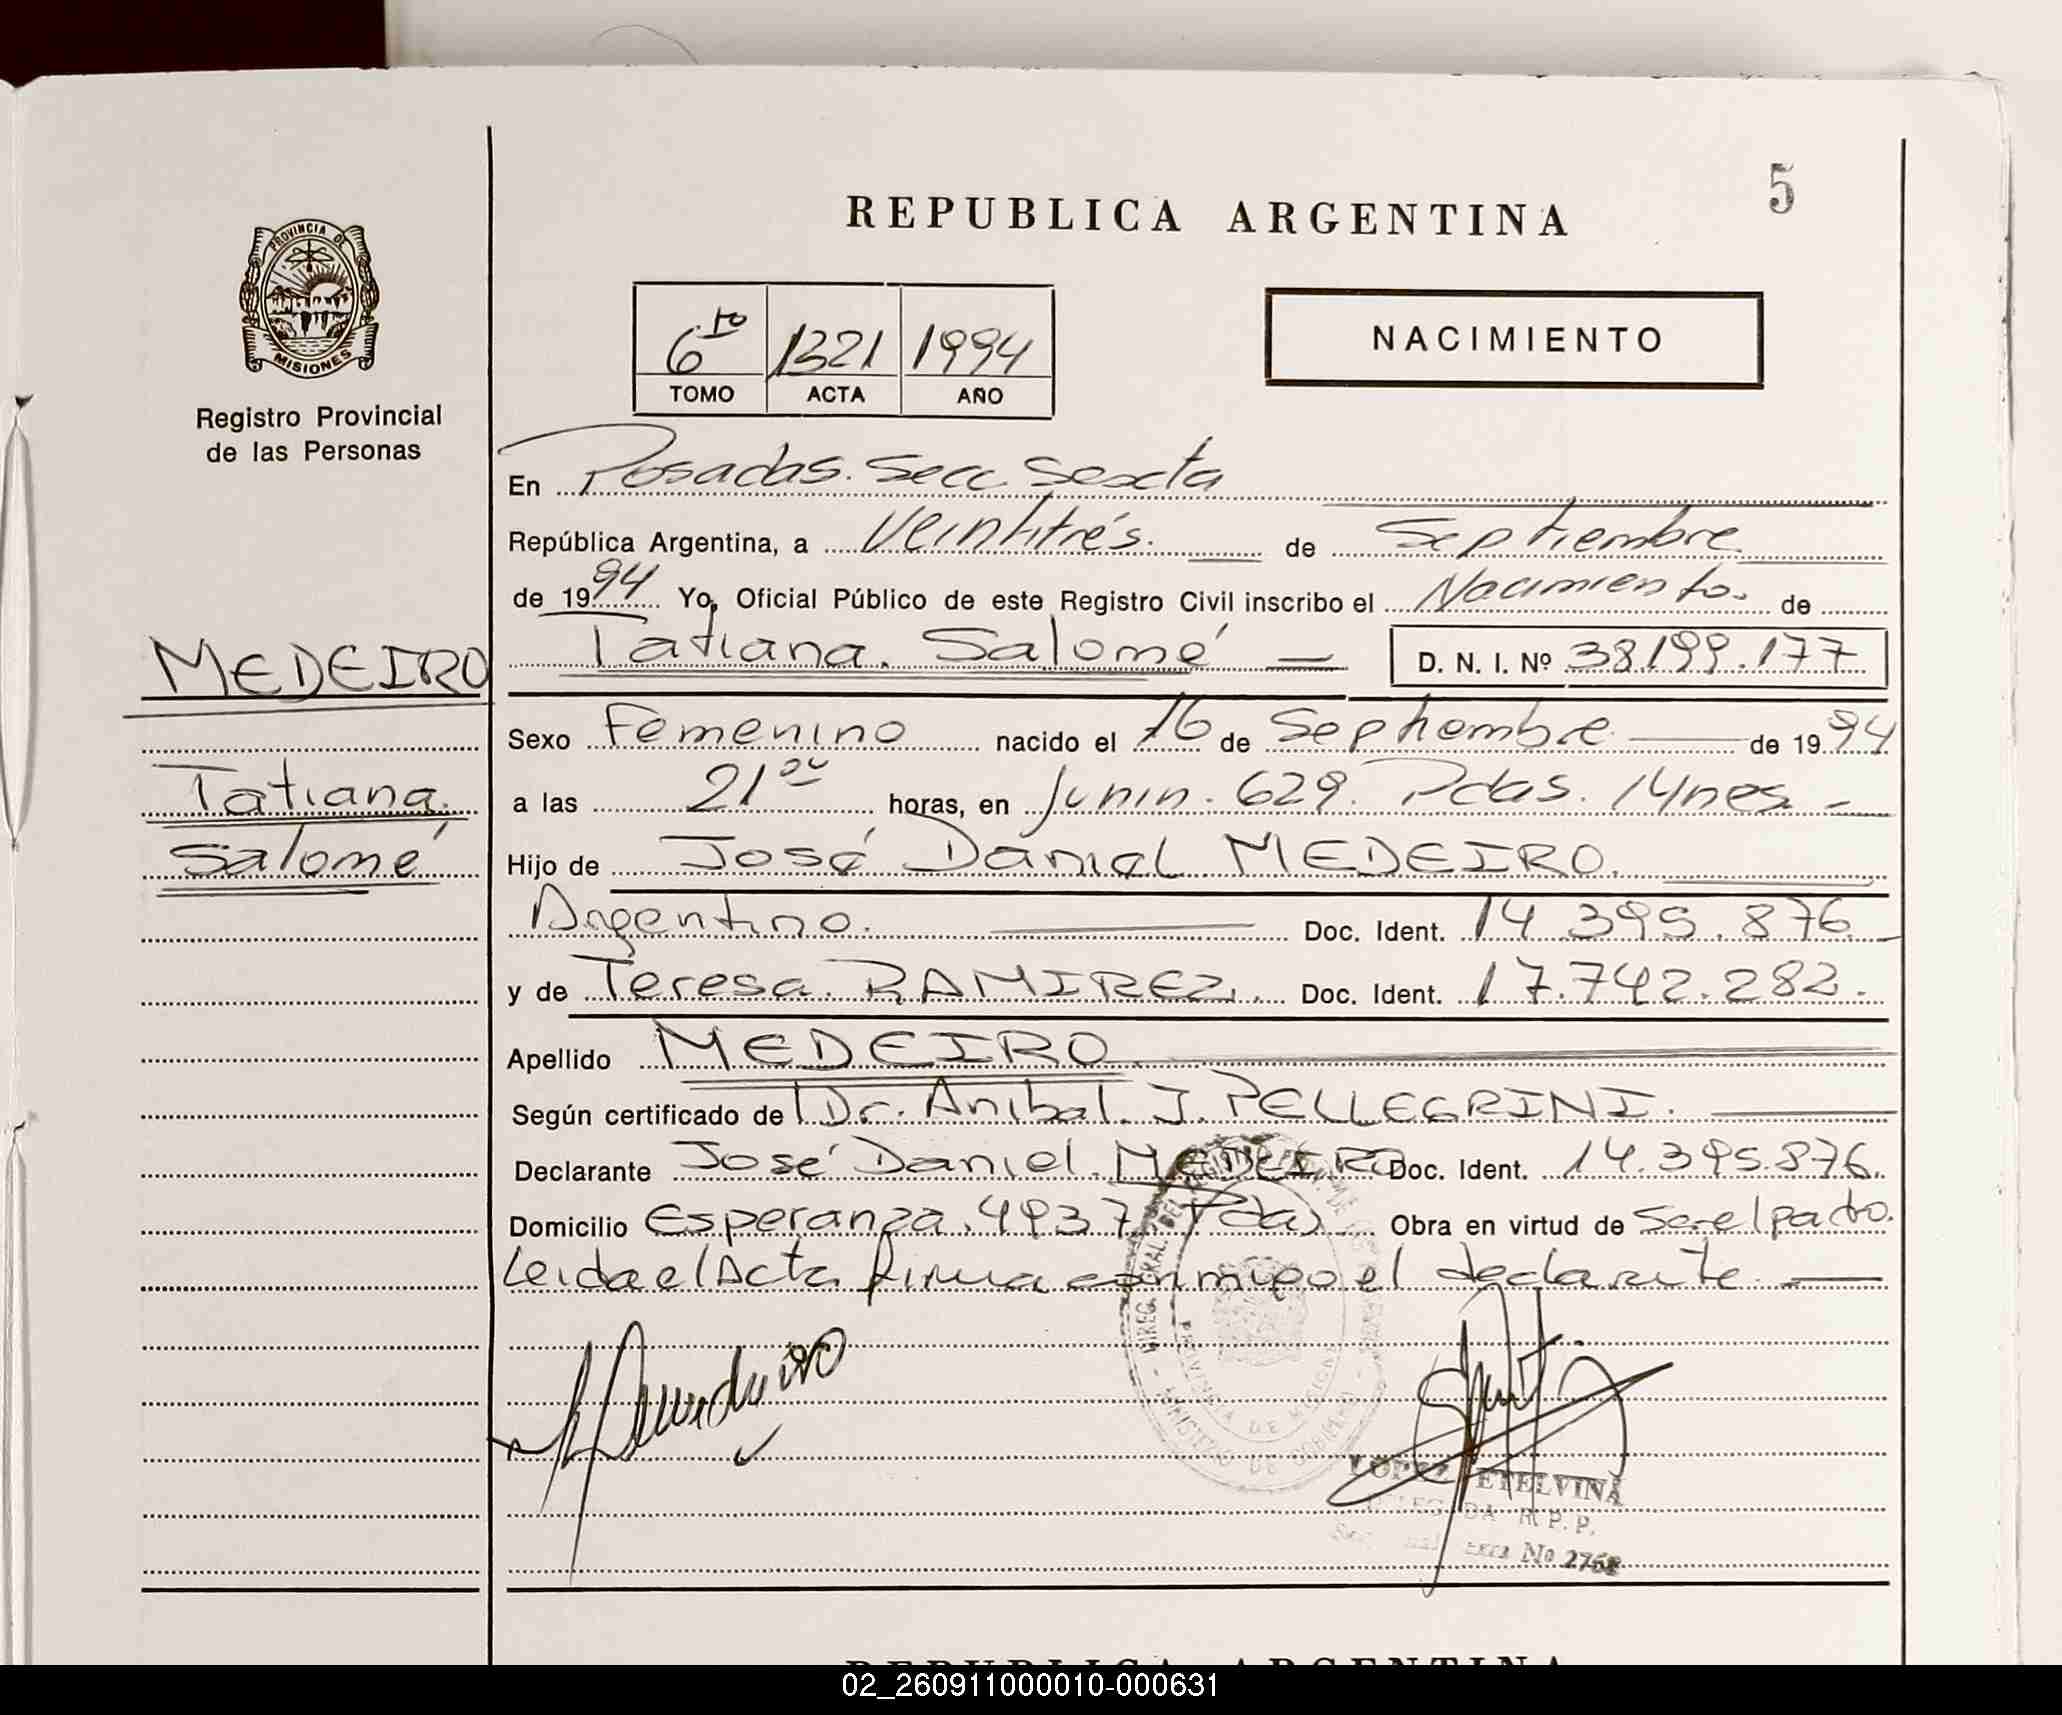 5
REPUBLICA ARGENTINA
PROVINCIA DE
MISIONES
Registro Provincial
de las Personas
6to 1321 1994
TOMO ACTA AÑO
NACIMIENTO
En Posadas. Secc Sexta
República Argentina, a Veintitrés. de Septiembre
de 1994 Yo, Oficial Público de este Registro Civil inscribo el Nacimiento. de
MEDEIRO
Tatiana. Salomé D. N. I. Nº 38199.177
Sexo Femenino nacido el 16 de Septiembre de 1994
Tatiana.
Salomé
a las 21 horas, en Junin. 629. Pdas. Mnes.
Hijo de José Daniel MEDEIRO.
Argentino. Doc. Ident. 14.395.876
y de Teresa. RAMIREZ. Doc. Ident. 17.742.282.
Apellido MEDEIRO
Según certificado de Dr. Anibal. J. PELLEGRINI.
Declarante José Daniel. MEDEIRO Doc. Ident. 14.395.876.
Domicilio Esperanza. 4937 Pdas Obra en virtud de Ser el padre.
Leida el Acta firma conmigo el declarante
LOPEZ ETELVINA
DELEGADA R.P.P.
No 2768
REPUBLICA ARGENTINA
02_260911000010-000631